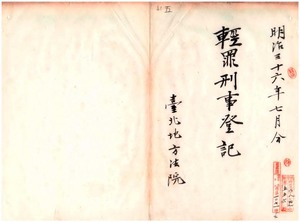 明治三十六年七月分
輕罪刑事登記
臺北地方法院